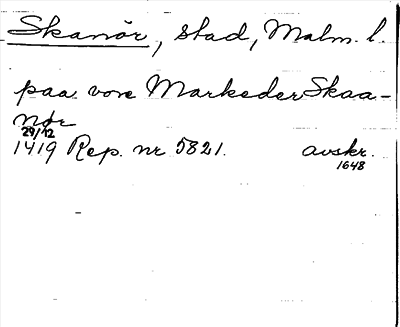 Skanör, stad, Malm. l.
paa vore Markeder Skaa-
nør
29/12
1419 Rep. nr 5821. avskr.
1648